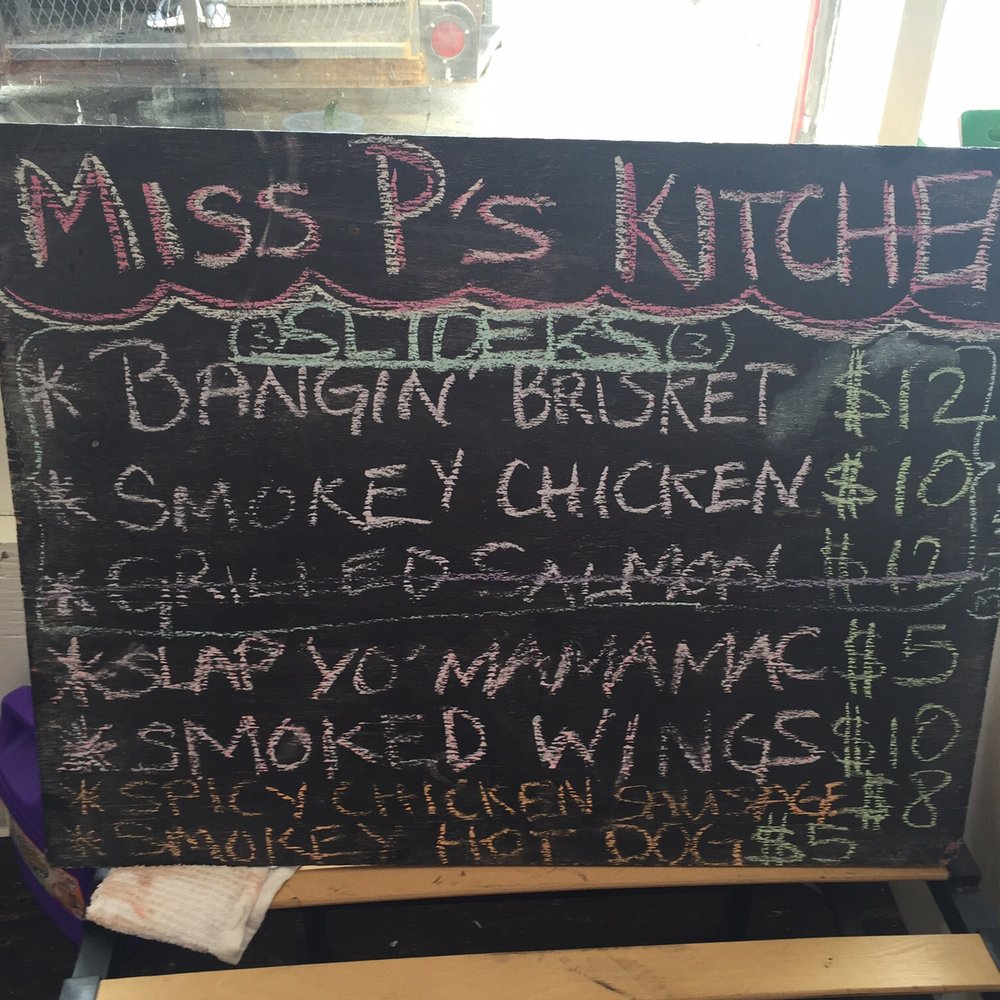 MISS P'S KITCHEN
3 SLIDERS 3
* BANGIN' BRISKET $12
* SMOKEY CHICKEN $10
* GRILLED SALMON $12
* SLAP YO' MAMA MAC $5
* SMOKED WINGS $10
* SPICY CHICKEN SAUSAGE $8
* SMOKEY HOT DOG $5